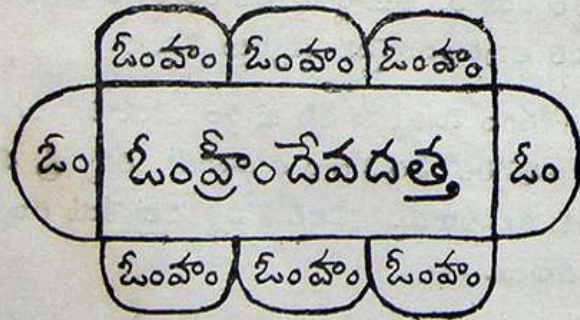 ఓంహం ఓంహం ఓంహం
ఓం ఓంహ్రీందేవదత్త ఓం
ఓంహం ఓంహం ఓంహం